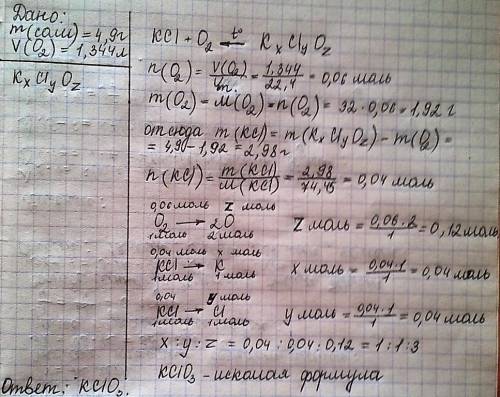 Дано:
m(соли) = 4,9г
V(O₂) = 1,344л
KₓClᵧO_z
KCl + O₂ ←t° KₓClᵧO_z
n(O₂) = V(O₂)/Vm = 1,344/22,4 = 0,06 моль
m(O₂) = M(O₂)·n(O₂) = 32·0,06 = 1,92 г
отсюда m(KCl) = m(KₓClᵧO_z) - m(O₂) =
= 4,90 - 1,92 = 2,98г
n(KCl) = m(KCl)/M(KCl) = 2,98/74,45 = 0,04 моль
0,06 моль z моль
O₂ → 2O z моль = 0,06·2/1 = 0,12 моль
1моль 2моль
0,04 моль x моль
KCl → K x моль = 0,04·1/1 = 0,04 моль
1моль 1моль
0,04 y моль
KCl → Cl y моль = 0,04·1/1 = 0,04 моль
1моль 1моль
x : y : z = 0,04 : 0,04 : 0,12 = 1 : 1 : 3
KClO₃ - искомая формула
Ответ: KClO₃.